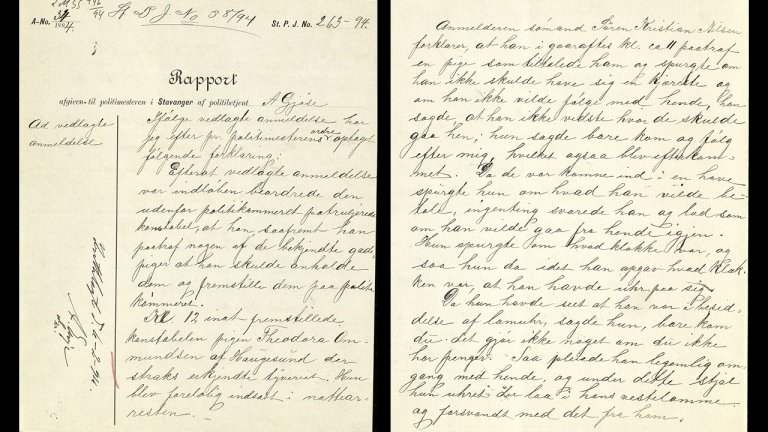 A-No.
St. P. J. No. 263-94.
Rapport
afgiven til politimesteren i Stavanger af politibetjent A Gjøse
Ad vedlagte
anmeldelse
Ifølge vedlagte anmeldelse har
jeg efter hr. politimesterens ordre optaget
følgende forklaring:
Efterat vedlagte anmeldelse
var indløben beordrede den
udenfor politikammeret patruljerende
konstabel, at han, saafremt han
paatraf nogen af de bekjendte gade-
piger at han skulde anholde
dem og fremstille dem paa politi-
kammeret.
Kl 12 inat fremstillede
konstabelen pigen Theodora Om-
mundsen af Haugesund der
straks erkjendte tyveriet. Hun
blev foreløbig indsat i nattear-
resten.
Anmelderen sømand Søren Kristian Nilsen
forklarer, at han i gaaraftes kl. ca 11 paatraf
en pige som tiltalede ham og spurgte om
han ikke skulde have sig en kjæreste og
om han ikke vilde følge med hende, han
sagde, at han ikke vidste hvor de skulde
gaa hen; hun sagde bare kom og følg
efter mig, hvilket ogsaa blev efterkom-
met. Da de var komne ind i en have
spurgte hun om hvad han vilde be-
tale, ingenting svarede han og lod som
om han vilde gaa fra hende igjen.
Hun spurgte om hvad klokke var, og
saa hun da idet han opgav hvad klok-
ken var, at han havde uhr paa sig.
Da hun havde seet at han var i besid-
delse af lomuhr, sagde hun, bare kom
du. det gjør ikke noget om du ikke
har penger. Saa pleiede han legemlig om-
gang med hende, og under dette stjal
hun uhret der laa i hans vestelomme
og forsvandt med det fra ham.